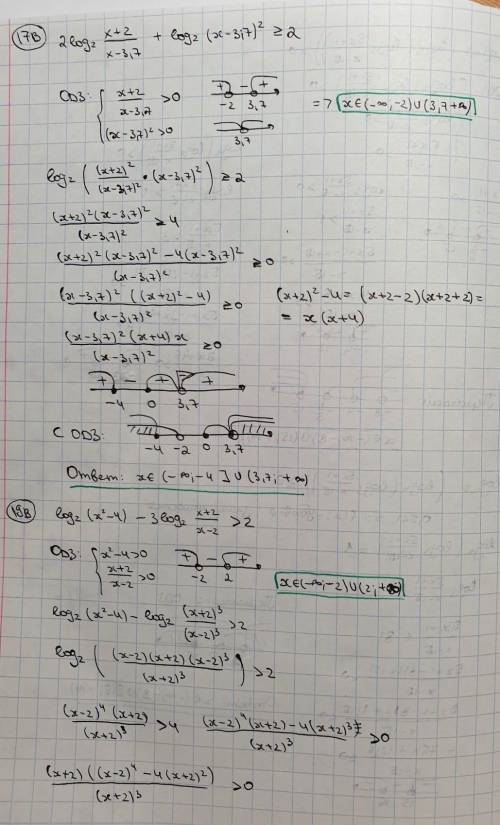 17B 2log₂ (x+2)/(x-3,7) + log₂ (x-3,7)² ≥ 2
ОДЗ: { (x+2)/(x-3,7) > 0 + - + -2 3,7 => x∈(-∞;-2)∪(3,7+∞)
(x-3,7)² > 0 3,7
log₂ ( (x+2)²/(x-3,7)² • (x-3,7)² ) ≥ 2
(x+2)²(x-3,7)²/(x-3,7)² ≥ 4
((x+2)²(x-3,7)² -4(x-3,7)²)/(x-3,7)² ≥ 0
(x-3,7)² ((x+2)²-4)/(x-3,7)² ≥ 0 (x+2)²-4 = (x+2-2)(x+2+2) =
= x(x+4)
(x-3,7)²(x+4)x/(x-3,7)² ≥ 0
+ - + +
-4 0 3,7
С ОДЗ: -4 -2 0 3,7
Ответ: x∈(-∞;-4]∪(3,7;+∞)
18B log₂(x²-4) - 3log₂ (x+2)/(x-2) > 2
ОДЗ: { x²-4>0 + - + -2 2
(x+2)/(x-2) > 0 x∈(-∞;-2)∪(2;+∞)
log₂(x²-4) - log₂ (x+2)³/(x-2)³ > 2
log₂ ( (x-2)(x+2)(x-2)³/(x+2)³ ) > 2
(x-2)⁴(x+2)/(x+2)³ > 4 ((x-2)⁴(x+2)-4(x+2)³)/(x+2)³ > 0
(x+2)((x-2)⁴-4(x+2)²)/(x+2)³ > 0